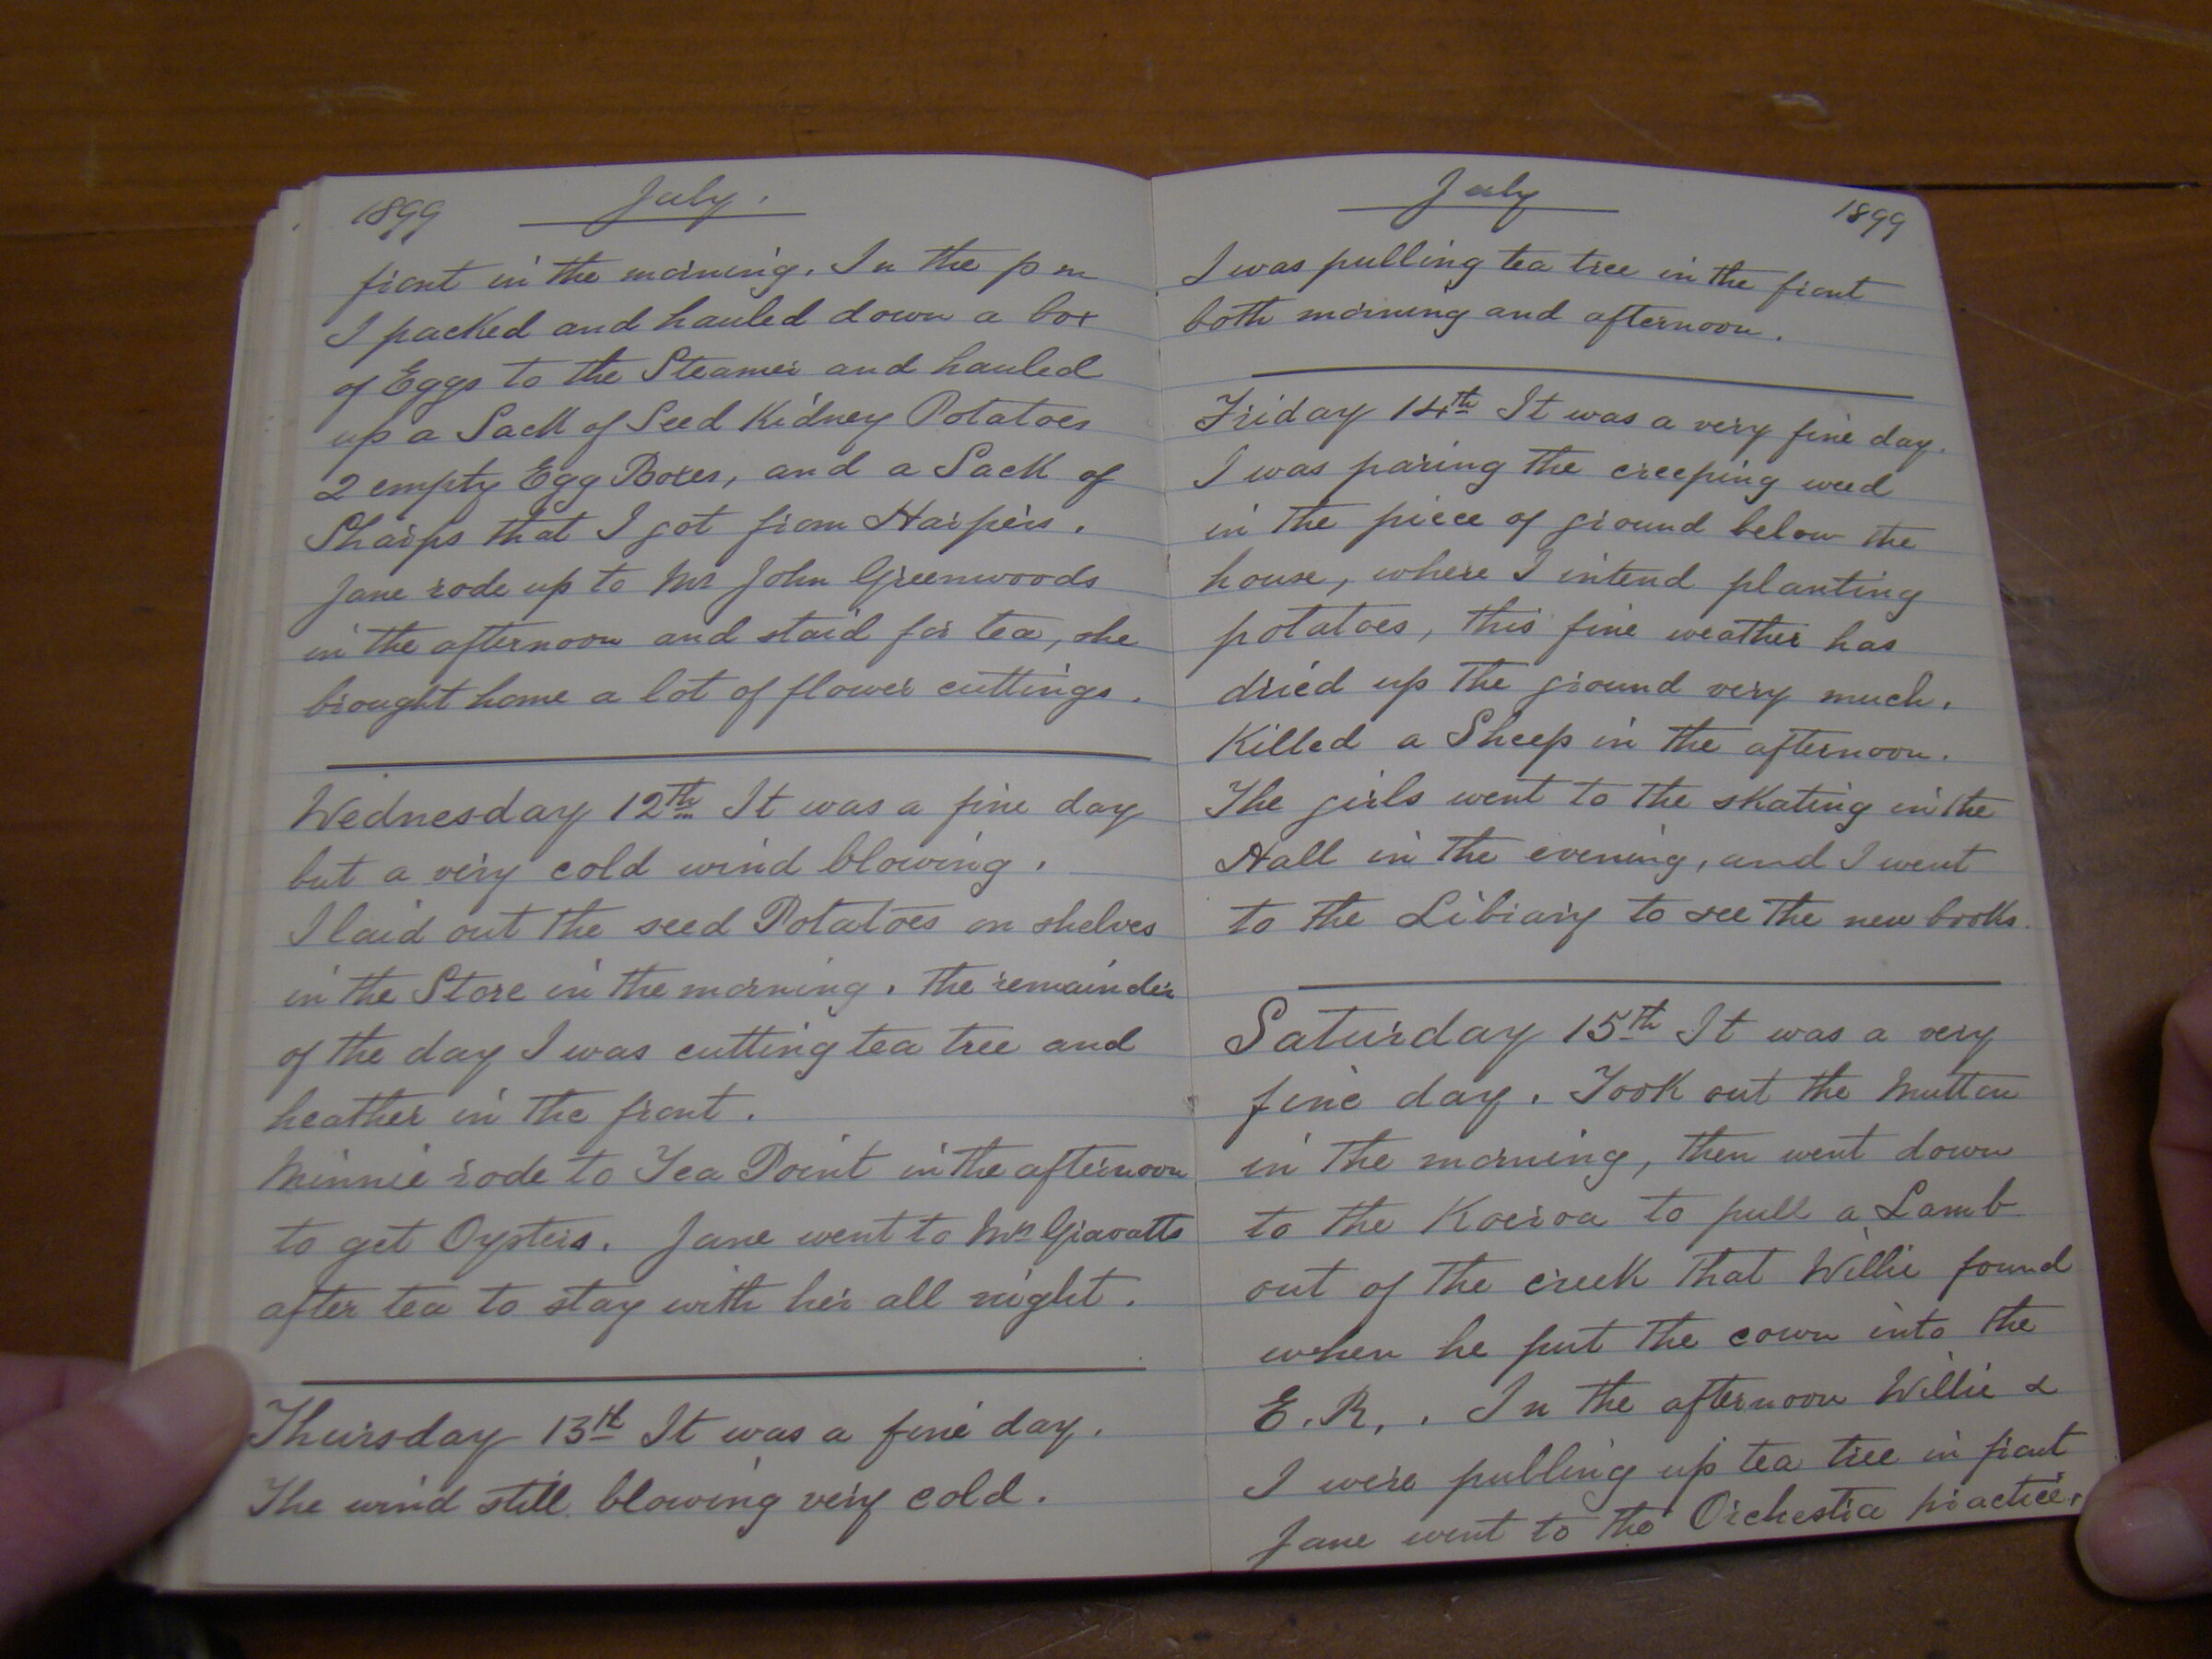 1899 July.
front in the morning. In the p m
I packed and hauled down a box
of Eggs to the Steamer and hauled
up a Sack of Seed Kidney Potatoes
2 empty Egg Boxes, and a Sack of
Sharps that I got from Harpers.
Jane rode up to Mr John Greenwoods
in the afternoon and staid for tea, she
brought home a lot of flower cuttings.
Wednesday 12th It was a fine day
but a very cold wind blowing.
I laid out the seed Potatoes on shelves
in the Store in the morning. the remainder
of the day I was cutting tea tree and
heather in the front.
Minnie rode to Tea Point in the afternoon
to get Oysters. Jane went to Mrs Gravatts
after tea to stay with her all night.
Thursday 13th It was a fine day.
The wind still blowing very cold.
July 1899
I was pulling tea tree in the front
both morning and afternoon.
Friday 14th It was a very fine day.
I was paring the creeping weed
in the piece of ground below the
house, where I intend planting
potatoes, this fine weather has
dried up the ground very much.
Killed a Sheep in the afternoon.
The girls went to the skating in the
Hall in the evening, and I went
to the Library to see the new books.
Saturday 15th It was a very
fine day. Took out the Mutton
in the morning, then went down
to the Kaeroa to pull a Lamb
out of the creek that Willie found
when he put the cows into the
E.R.. In the afternoon Willie &
I were pulling up tea tree in front
Jane went to the Orchestra practice.